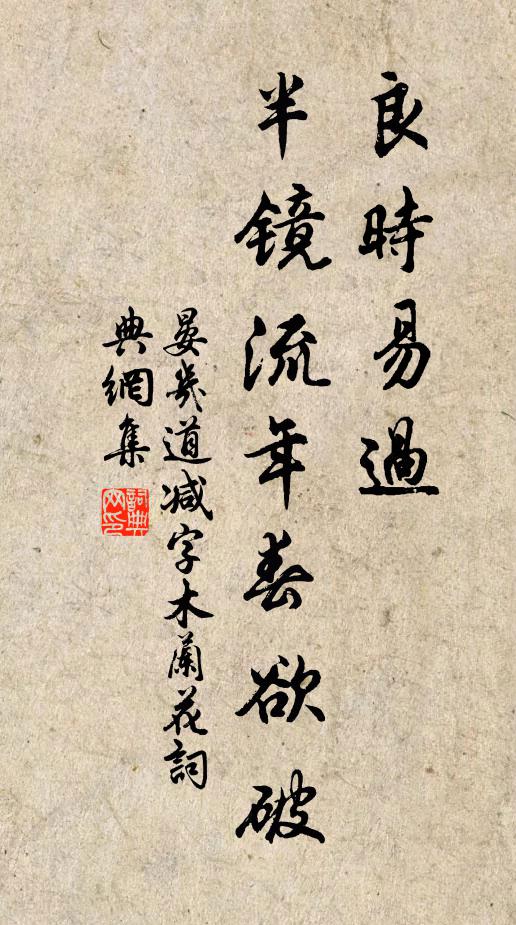 良時易過
半镜流年春欲破
晏幾道减字木蘭花詞
典網集
詞典网印